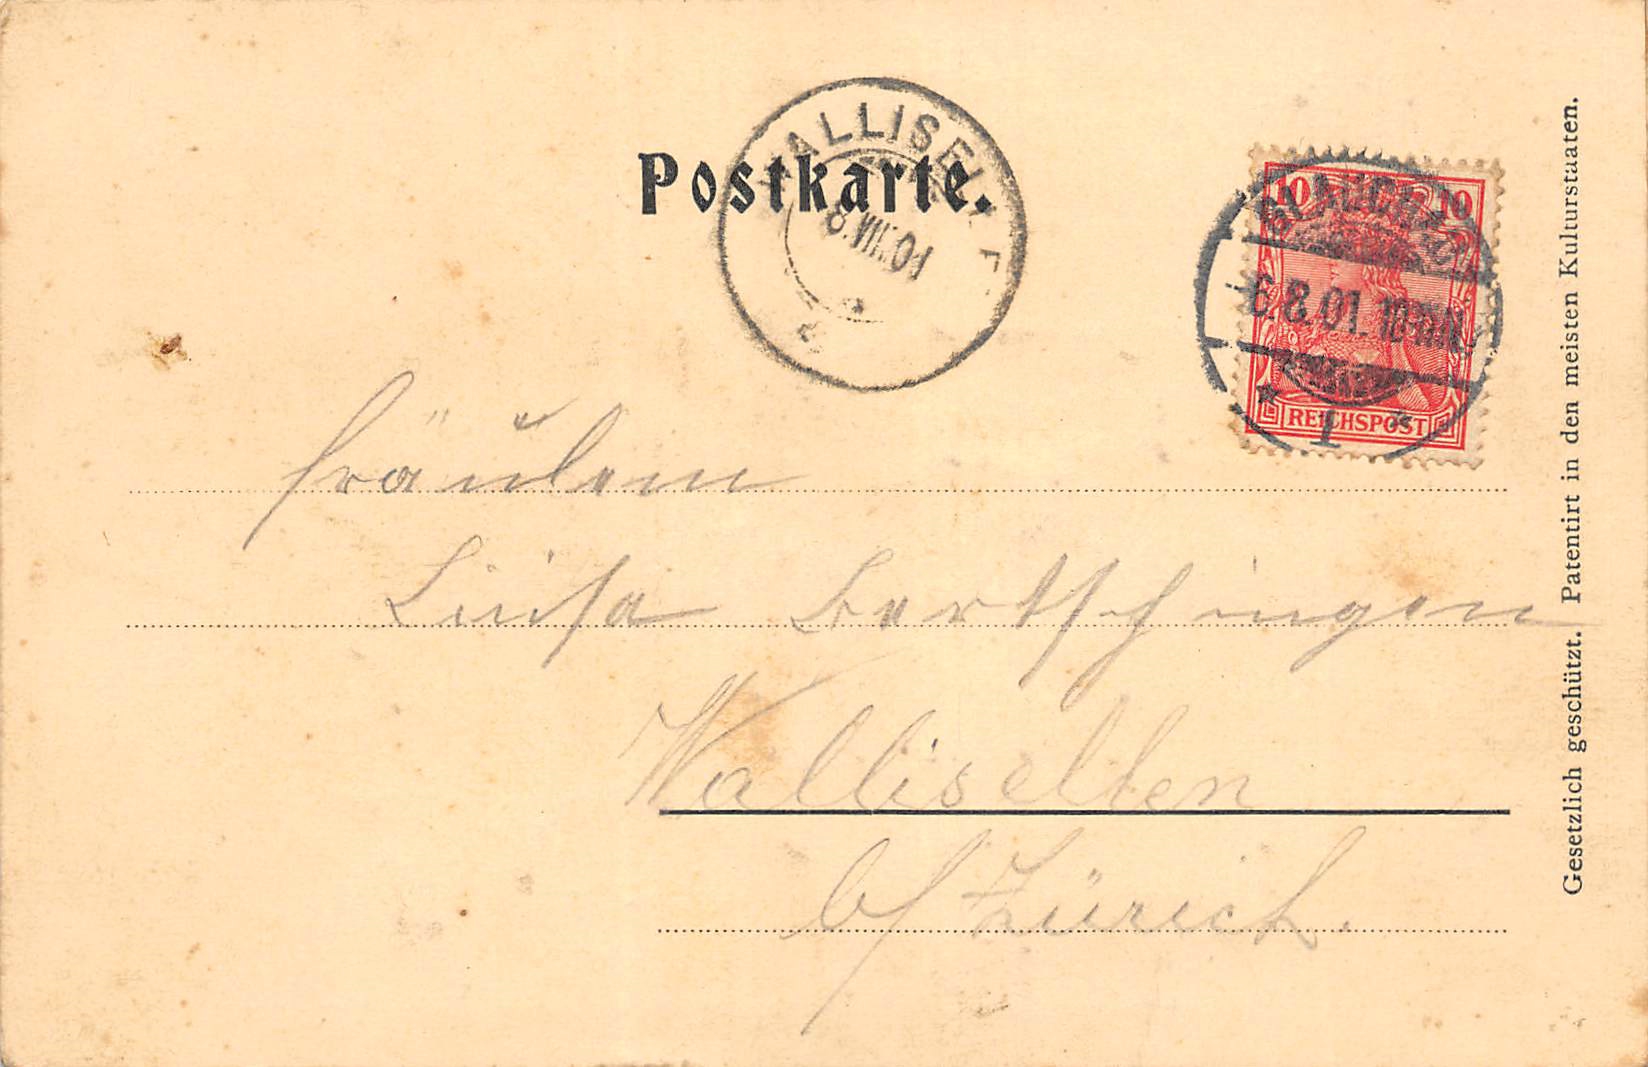 Postkarte.
WALLISELLEN
8.VIII.01
GLAUCHAU
6.8.01. 10
1
10 10
REICHSPOST
Fräulein
Luisa Bertschinger
Wallisellen
b/ Zürich.
Gesetzlich geschützt. Patentirt in den meisten Kulturstaaten.